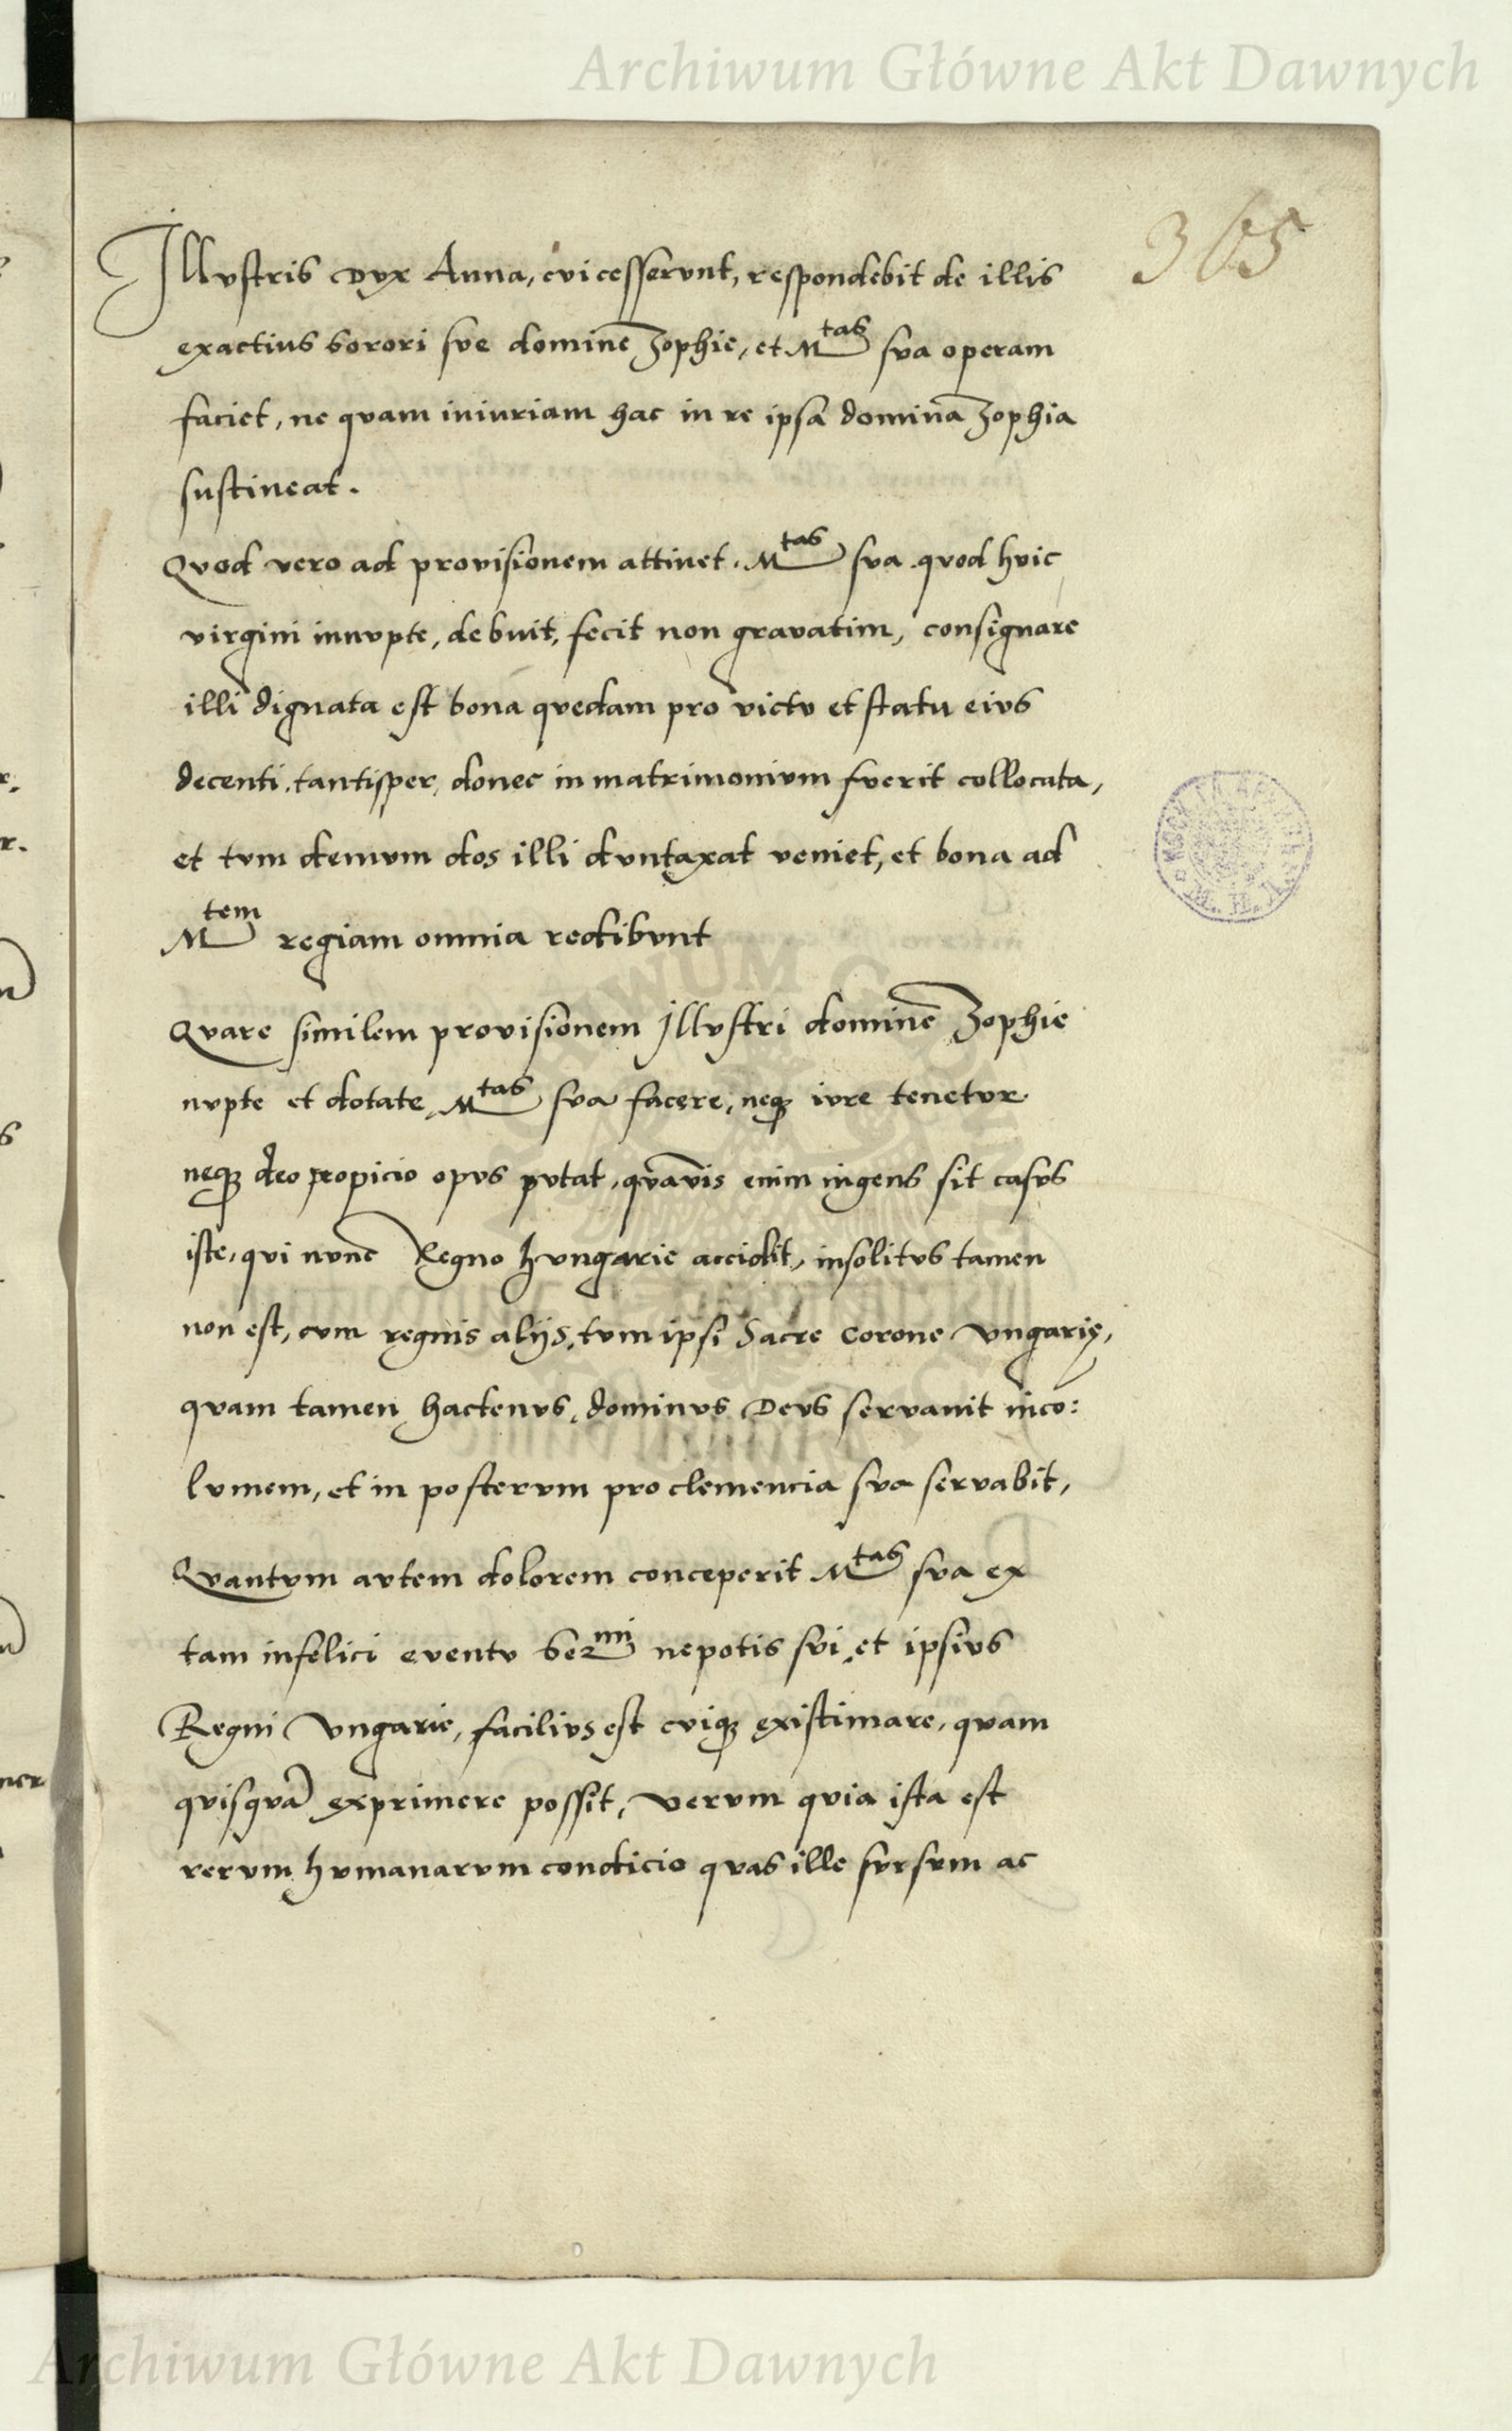 Archiwum Główne Akt Dawnych
365
Illustris Dux Anna, cui cesserunt, respondebit de illis
exactius sorori sve dominę Zophie, et M^tas sva operam
faciet, ne quam iniuriam hac in re ipsa domina Zophia
sustineat.
Quod vero ad provisionem attinet. M^tas sva quod huic
virgini innvpte, debuit, fecit non gravatim, consignare
illi dignata est bona quedam pro victv et statu eivs
decenti, tantisper, donec in matrimonivm fverit collocata,
et tvm demvm dos illi dvntaxat veniet, et bona ad
M^tem regiam omnia redibvnt
Qvare similem provisionem Illvstri domine Zophie
nvpte et dotate, M^tas sva facere, neqȝ ivre tenetvr
neqȝ deo propicio opvs pvtat, qvāvis enim ingens sit casvs
iste, qvi nvnc Regno hvngarie accidit, insolitvs tamen
non est, cvm regnis alijs, tvm ipsi Sacre Corone Vngarię,
qvam tamen hactenvs, dominvs Devs servavit inco:
lvmem, et in postervm pro clemencia sva servabit,
Qvantvm avtem dolorem conceperit M^tas sva ex
tam infelici eventv Ser^mi nepotis svi, et ipsivs
Regni Vngarie, facilivs est cviqȝ existimare, qvam
qvisqvā exprimere possit, Vervm qvia ista est
rervm hvmanarvm condicio qvas ille svrsvm ac
Archiwum Główne Akt Dawnych